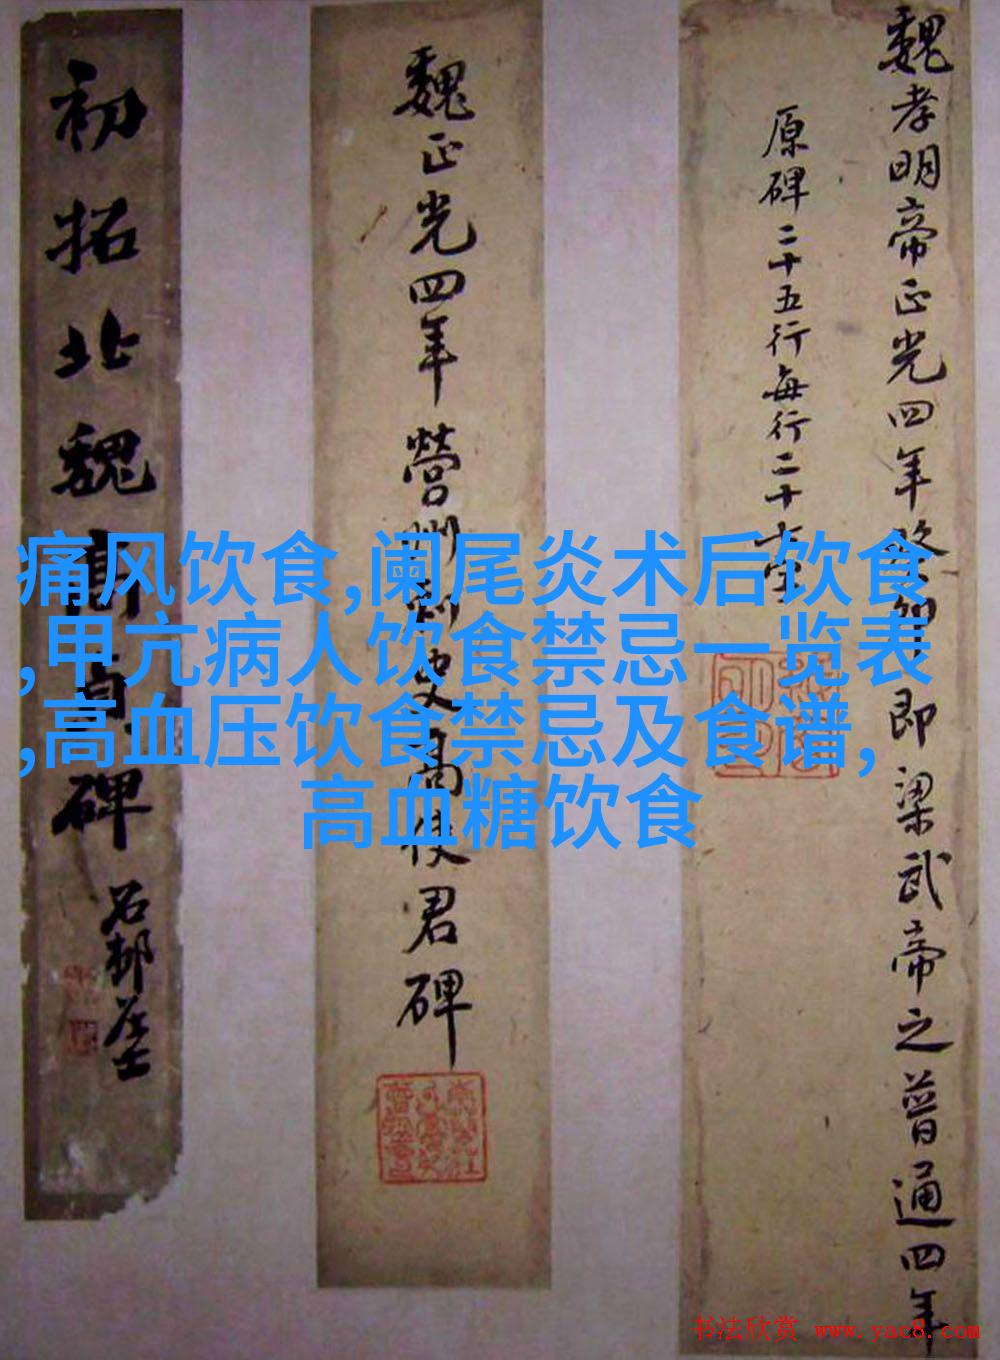 魏孝明帝正光四年癸卯即梁武帝之普通四年
原碑二十五行每行二十
魏正光四年營州刺史高使君碑
初拓北魏高貞碑
石邨
痛风饮食,阑尾炎术后饮食
,甲亢病人饮食禁忌一览表
,高血压饮食禁忌及食谱,
高血糖饮食
书法欣赏 www.yac8.com